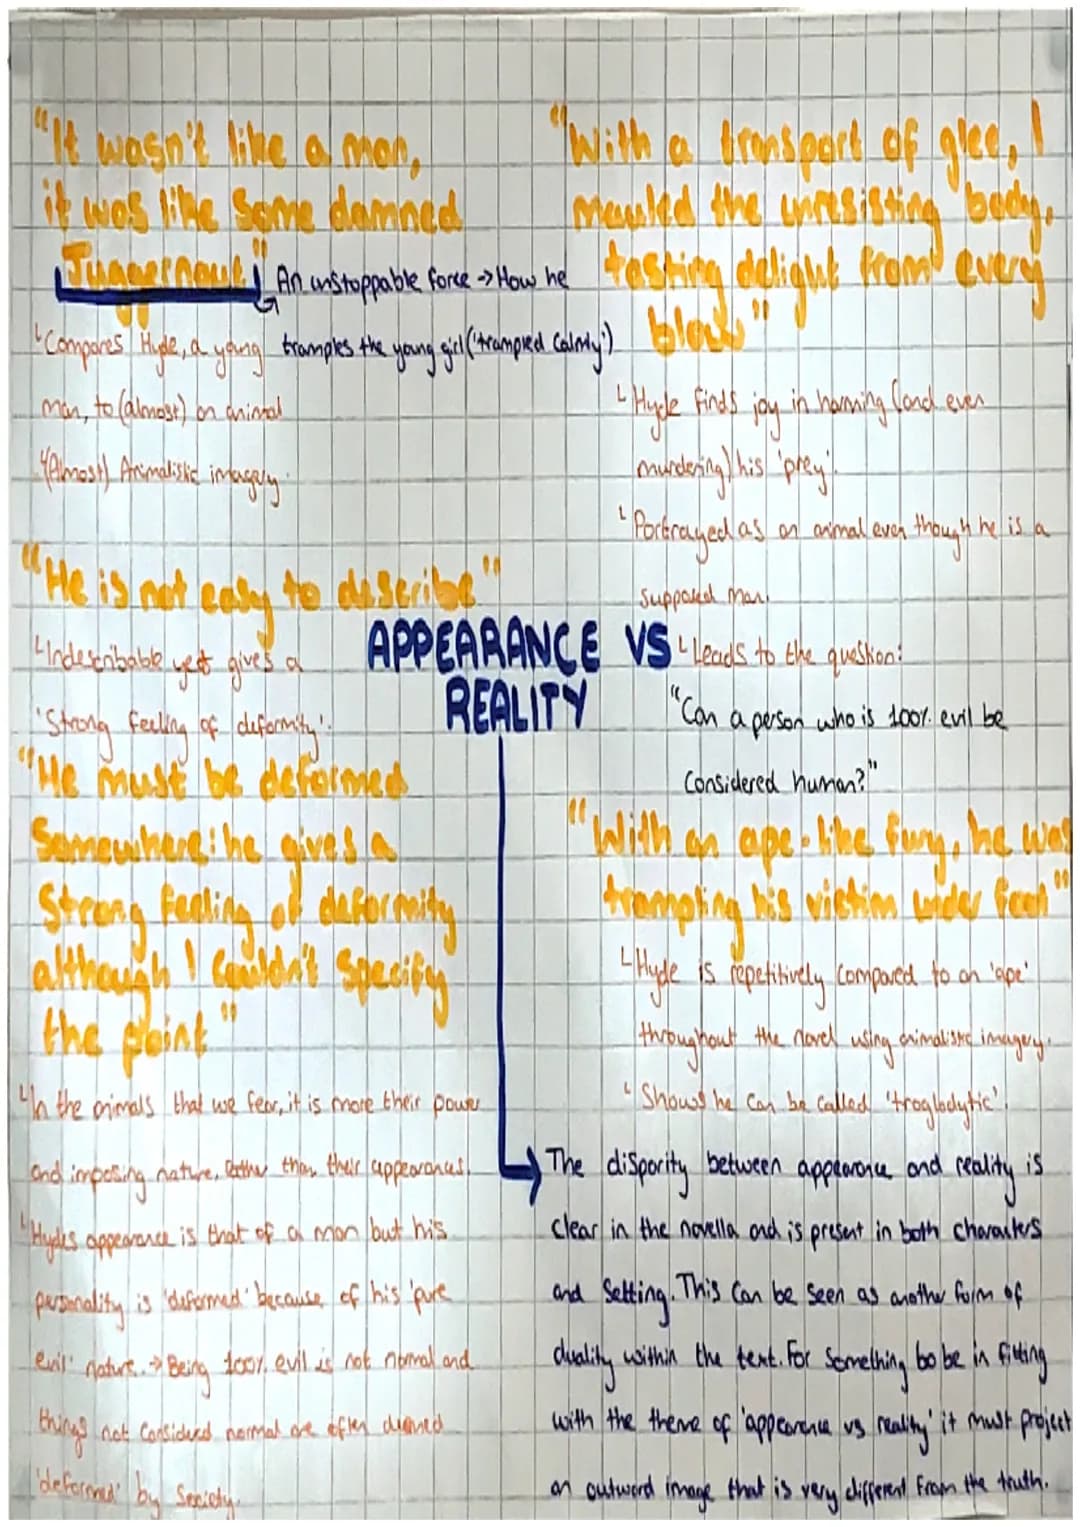 "It wasn't like a man,
it was like some damned
Juggernaut"
An unstoppable force → How he
tramples the young girl ('trampled calmly')
Compares Hyde, a young
man, to (almost) an animal
(Almost) Animalistic imagery.
"With a transport of glee, I
mauled the unresisting body,
tasting delight from every
blow"
Hyde finds joy in harming (and even
murdering) his 'prey'.
Portrayed as an animal even though he is a
supposed man.
Leads to the question:
"Can a person who is 100% evil be
considered human?"
"He is not easy to describe"
Indescribable yet gives a
'strong feeling of deformity'.
APPEARANCE VS
REALITY
"He must be deformed
somewhere: he gives a
strong feeling of deformity
although I couldn't specify
the point"
In the animals that we fear, it is more their power
and imposing nature, rather than their appearances.
Hydes appearance is that of a man but his
personality is 'deformed' because of his 'pure
evil' nature. → Being 100% evil is not normal and
things not considered normal are often deemed
'deformed' by society.
"With an ape-like fury, he was
trampling his victim under foot"
Hyde is repetitively compared to an 'ape'
throughout the novel using animalistic imagery.
Shows he can be called 'troglodytic'.
The disparity between appearance and reality is
clear in the novella and is present in both characters
and setting. This can be seen as another form of
duality within the text. For something bo be in fitting
with the theme of 'appearance vs reality' it must project
an outward image that is very different from the truth.